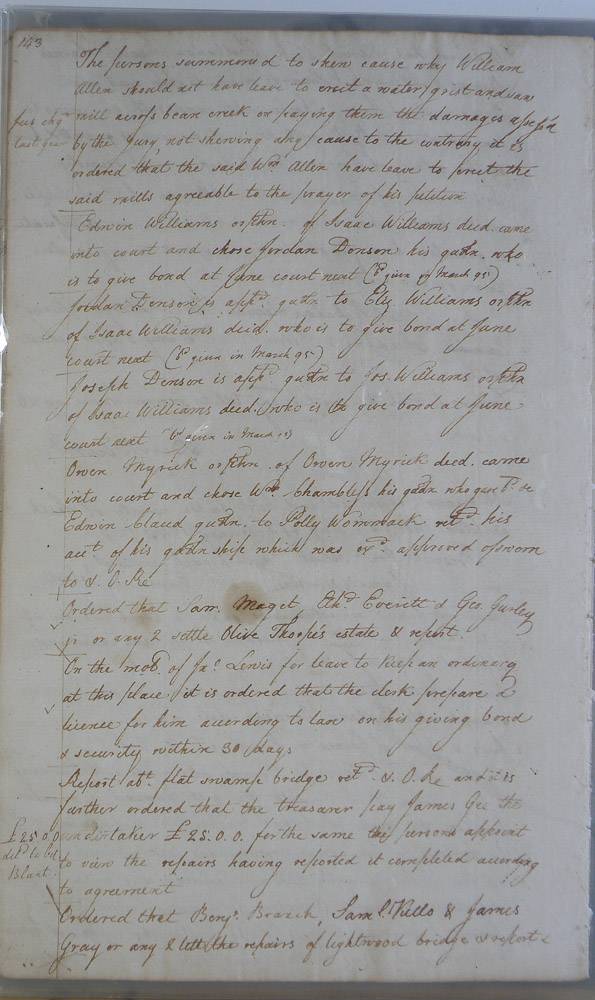 143
The persons summoned to shew cause why William
Allen should not have leave to erect a water grist and saw
mill across bean creek on paying them the damages assess'd
by the jury, not shewing any cause to the contrary it is
ordered that the said Wm. Allen have leave to erect the
said mills agreeable to the prayer of his petition
Edwin Williams orphn. of Isaac Williams decd. came
into court and chose Jordan Denson his gudn. who
is to give bond at June court next (Bd given in March 95)
Jordan Denson is appd. gudn to Ely Williams orphn
of Isaac Williams decd. who is to give bond at June
court next (Bd given in March 95)
Joseph Denson is appd gudn to Jos. Williams orphn
of Isaac Williams decd. who is to give bond at June
court next Bd given in March 95
Owen Myrick orphn. of Owen Myrick decd. came
into court and chose Wm. Chambless his gudn who gave bd. &c
Edwin Claud gudn. to Polly Wommack retd. his
acct. of his gudnship which was exd. approved of sworn
to & O. Re
Ordered that Sam. Maget, Ethd. Everett & Geo. Gurley
jr or any 2 settle Olive Thorpe's estate & report
On the mo. of Jas. Lewis for leave to keep an ordinary
at this place it is ordered that the clerk prepare a
licence for him according to law on his giving bond
& security within 30 days
Report abt. flat swamp bridge retd. & O. Re and it is
further ordered that the treasurer pay James Gee the
undertaker £25.0.0. for the same the persons appoint
to view the repairs having reported it completed according
to agreement
£25.0.0
Blunt
Ordered that Benjn. Branch, Saml. Kello & James
Gray or any 2 lett the repairs of lightwood bridge & report